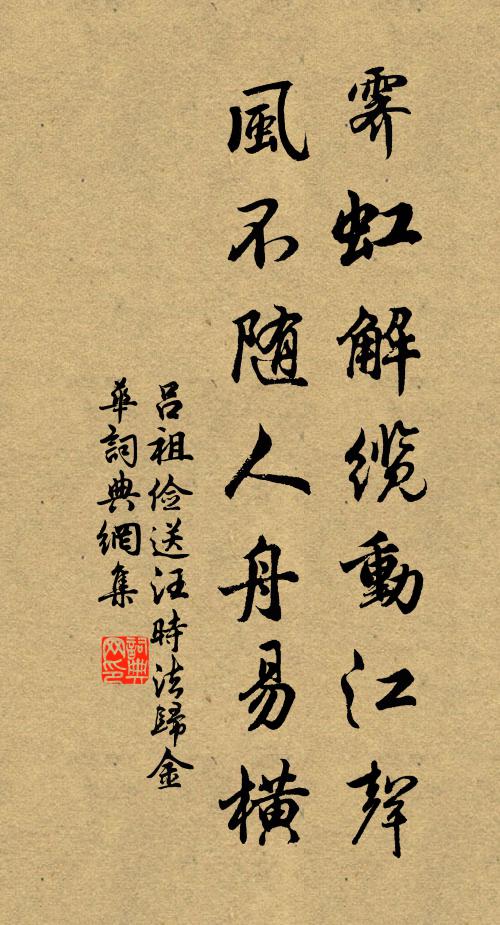 霁虹解缆動江聲
風不随人舟易橫
吕祖俭送汪時法歸金
華詞典網集
詞典
网印